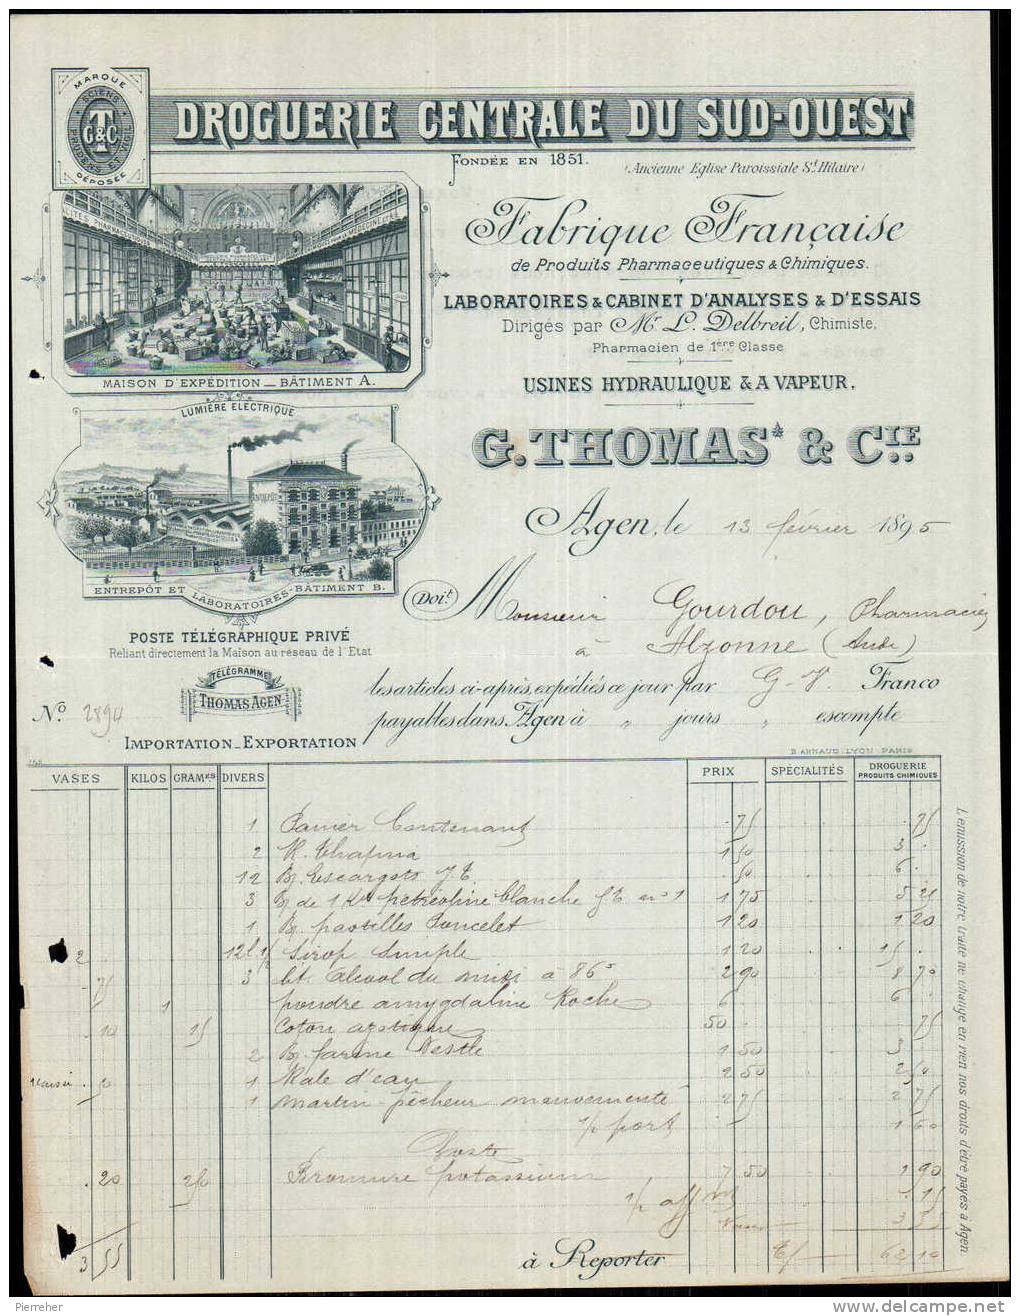 MARQUE
ACIENS
T
G&C
PRUDENS ET
DÉPOSÉE
DROGUERIE CENTRALE DU SUD-OUEST
FONDÉE EN 1851.
(Ancienne Eglise Paroissiale St Hilaire)
Fabrique Française
de Produits Pharmaceutiques & Chimiques.
LABORATOIRES & CABINET D'ANALYSES & D'ESSAIS
Dirigés par Mr L. Delbreil, Chimiste,
Pharmacien de 1ère Classe
USINES HYDRAULIQUE & A VAPEUR.
MAISON D'EXPÉDITION _ BÂTIMENT A.
LUMIÈRE ELECTRIQUE
G. THOMAS & CIE
Agen, le 13 février 1895
ENTREPÔT ET LABORATOIRES - BÂTIMENT B.
Doit Monsieur Gourdou, Pharmacien
à Alzonne (Aude)
POSTE TÉLÉGRAPHIQUE PRIVÉ
Reliant directement la Maison au réseau de l'Etat
TÉLÉGRAMME
THOMAS AGEN
les articles ci-après, expédiés ce jour par G. V. Franco
No 2894
payables dans Agen à " jours " escompte
IMPORTATION _ EXPORTATION
B. ARNAUD LYON PARIS
VASES KILOS GRAMES DIVERS PRIX SPÉCIALITÉS DROGUERIE PRODUITS CHIMIQUES
1 Panier Contenant . 75 . 75
2 K. Chapma 1 50 3 .
12 B. Escargots . 50 6 .
3 B. de 1 K petréoline blanche 1 75 5 25
1 B. pastilles Poncelet 1 20 1 20
2 12 l 1/2 Sirop simple 1 20 15 .
. 75 3 lit. alcool du midi à 86° 2 90 8 70
1 poudre amygdaline Roche 6 . 6 .
. 10 15 Coton 50 . . 75
2 B. farine Nestle 1 50 3 .
1 d'eau 2 50 2 50
1 martin-pêcheur mouvementé 2 75 2 75
port 1 60
Poste
. 20 250 Bromure potassium 7 50 1 90
. 15
3 55
3 55
à Reporter 62 10
L'emission de notre traite ne change en rien nos droits d'être payés à Agen
Pierreher
www.delcampe.net